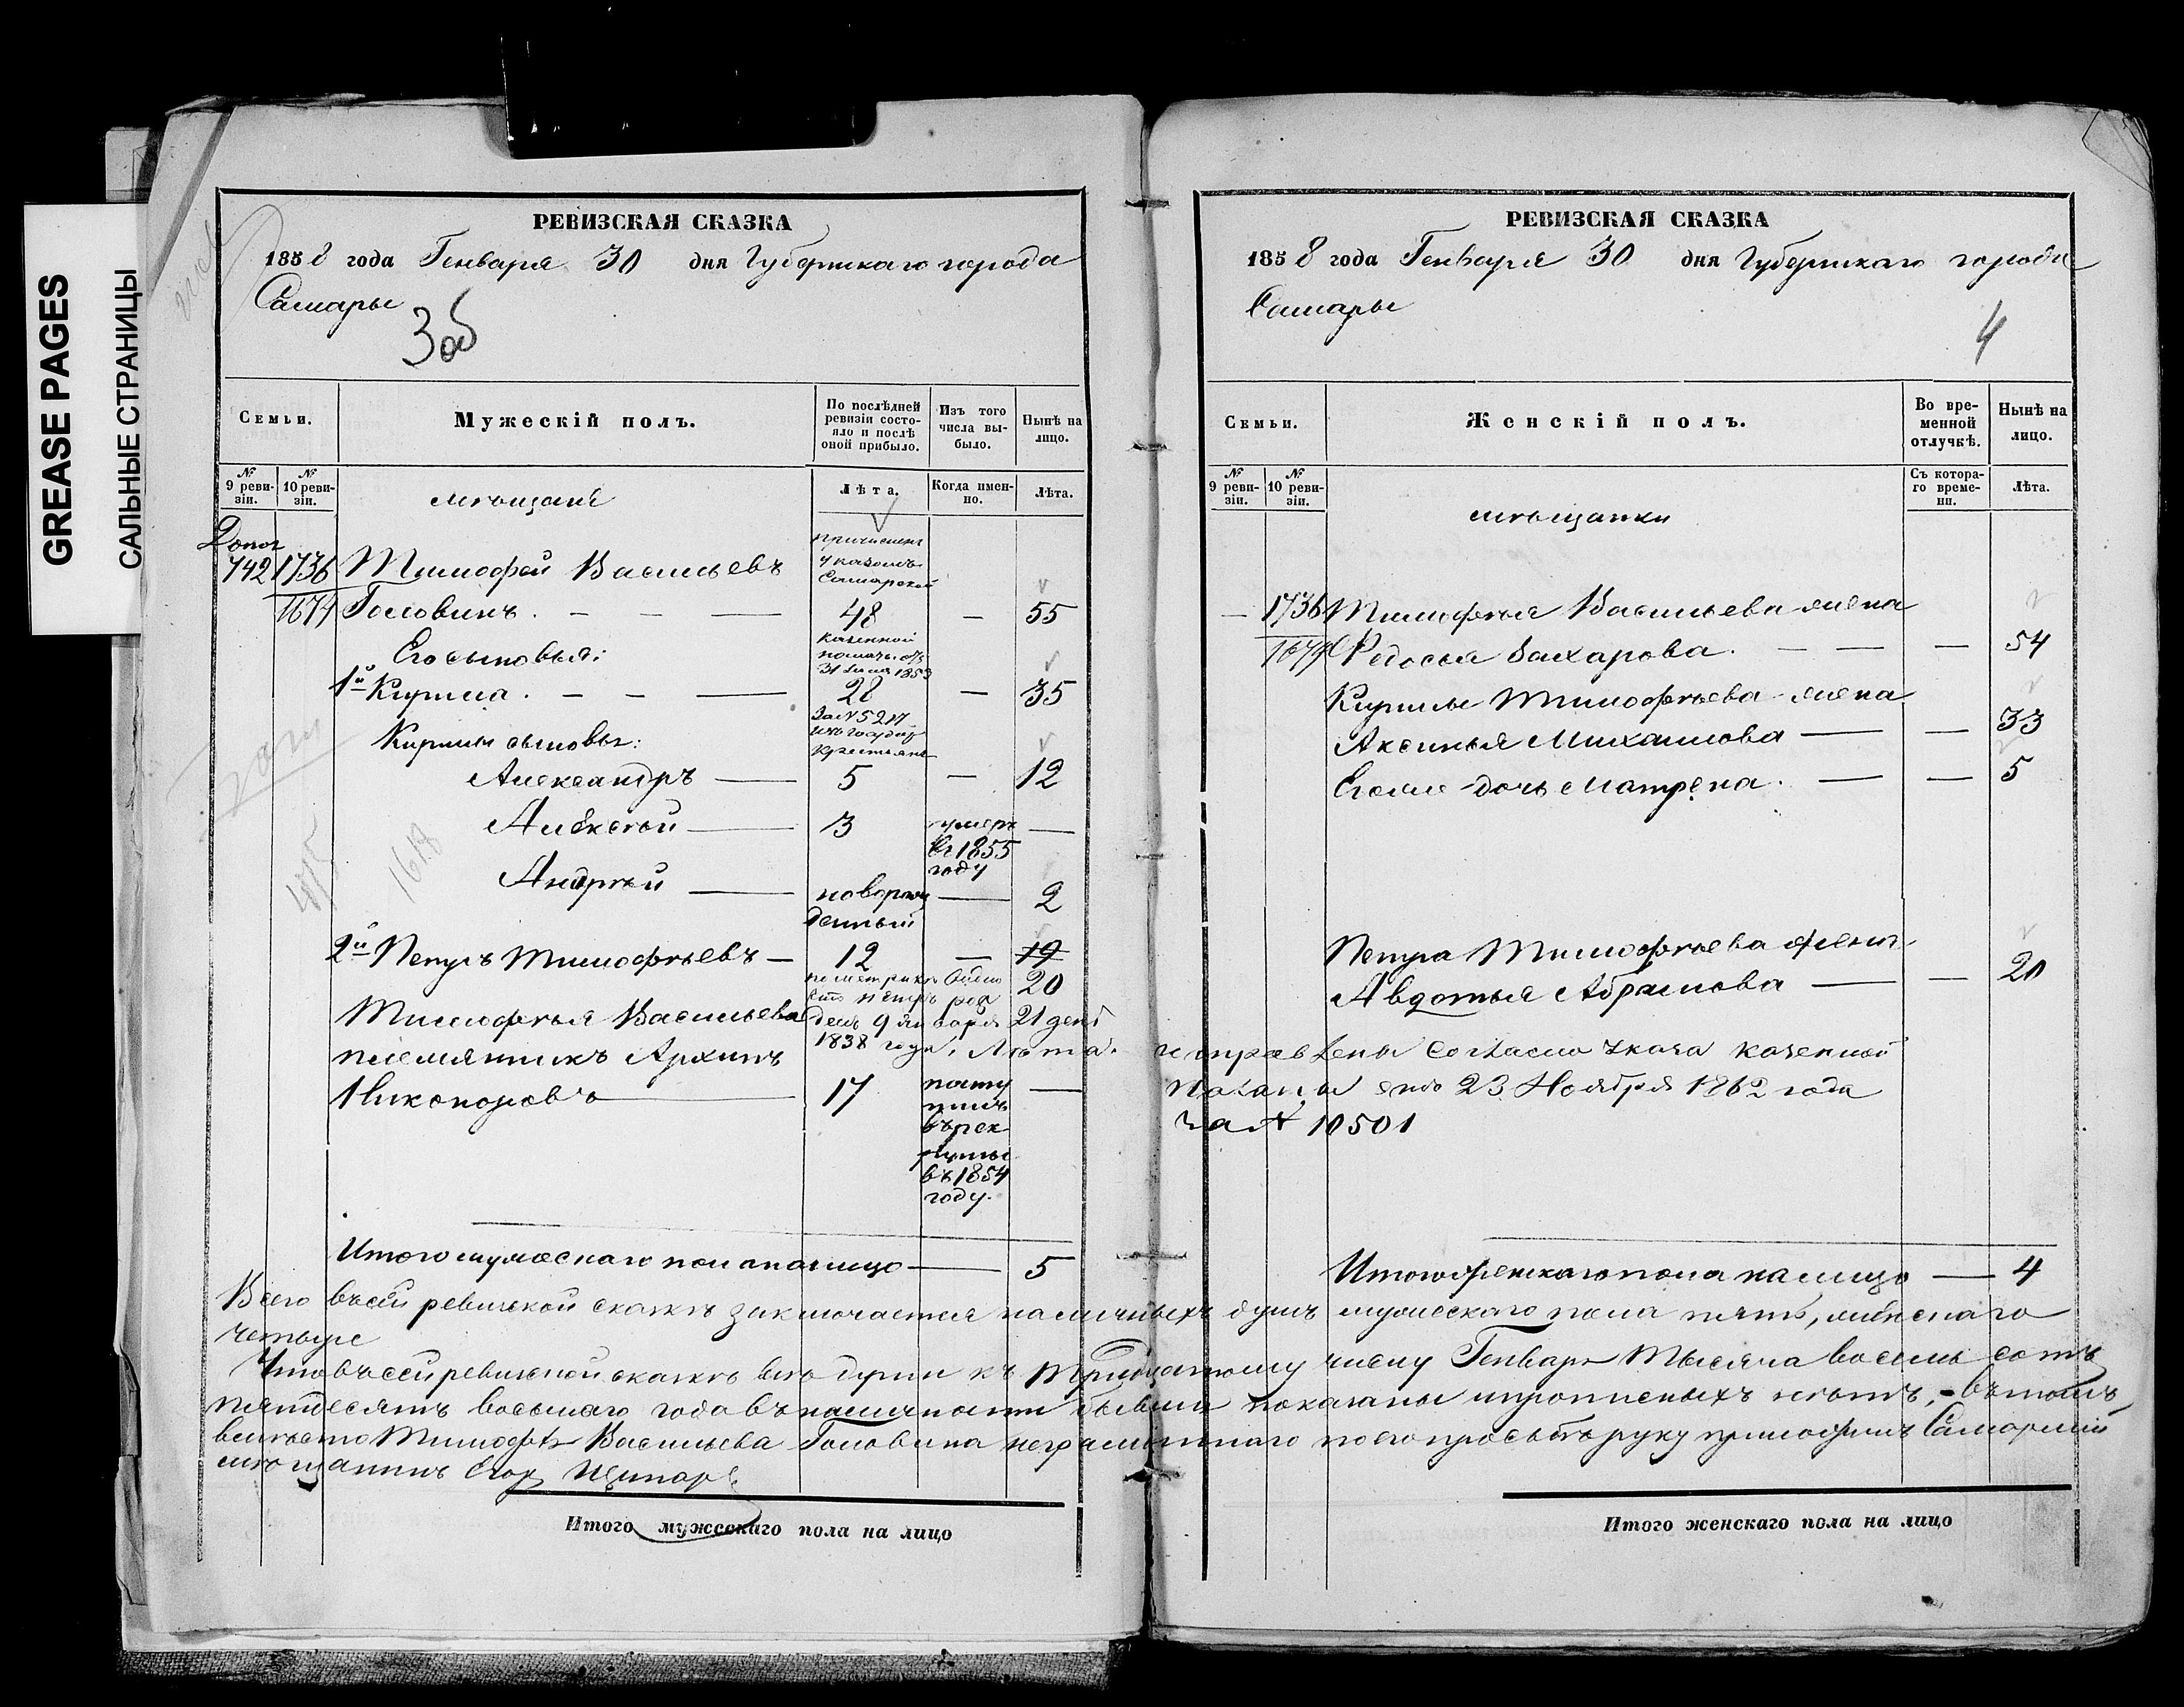 GREASE PAGES
САЛЬНЫЕ СТРАНИЦЫ
РЕВИЗСКАЯ СКАЗКА
1858 года Генваря 30 дня Губернскаго города
Самары
3об
Семьи.
Мужескій полъ.
По послѣдней ревизіи состояло и послѣ оной прибыло.
Изъ того числа выбыло.
Нынѣ на лицо.
№ 9 ревизіи.
№ 10 ревизіи.
мѣщане
Лѣта.
Когда именно.
Лѣта.
Допол
742 1736 Тимофей Васильевъ
1674 Головинъ. — — — 48 — 55
причисленъ
указомъ
Самарской
казенной
палаты отъ
31 1853
за № 5217
изъ государ
крестьянъ
Его сыновья:
1й Кирила. — — — 28 — 35
Кирилы сыновья:
Александръ — 5 — 12
Алексѣй — 3 умеръ въ 1855 году —
Андрей — новорожденный — 2
2й Петръ Тимофѣевъ — 12 — 19
20
по метрикѣ видно
что Петръ рож
денъ 9 января 21 день
1838 года. Лѣта. исправлены согласно указа казенной
палаты отъ 23 Ноября 1862 года
за № 10501
Тимофѣя Васильева
племянникъ Архипъ
Никоноровъ — 17 поступилъ въ рекруты въ 1854 году. —
Итого мужескаго пола на лицо — 5
РЕВИЗСКАЯ СКАЗКА
1858 года Генваря 30 дня Губернскаго города
Самары
4
Семьи.
Женскій полъ.
Во временной отлучкѣ.
Нынѣ на лицо.
№ 9 ревизіи.
№ 10 ревизіи.
мѣщанки
Съ котораго времени.
Лѣта.
— 1736 Тимофѣя Васильева жена
1674 Федосья Захарова. — — — 54
Кирилы Тимофѣева жена
Аксинья Михайлова — — 33
Его же дочь Матрена. — — 5
Петра Тимофѣева жена
Авдотья Абрамова — — 20
Итого женскаго пола на лицо — 4
Всего въ сей ревизской сказкѣ заключается наличныхъ душъ мужескаго пола пять, женскаго
четыре
Что въ сей ревизской сказкѣ всѣ души къ тридцатому числу Генваря тысяча восемь сотъ
пятдесятъ восьмаго года въ наличности бывшія показаны и прописныхъ нѣтъ, - въ томъ
вмѣсто Тимофѣя Васильева Головина неграмотнаго по его прозьбѣ руку приложилъ Самарскій
мѣщанинъ Егор
Итого мужескаго пола на лицо
Итого женскаго пола на лицо